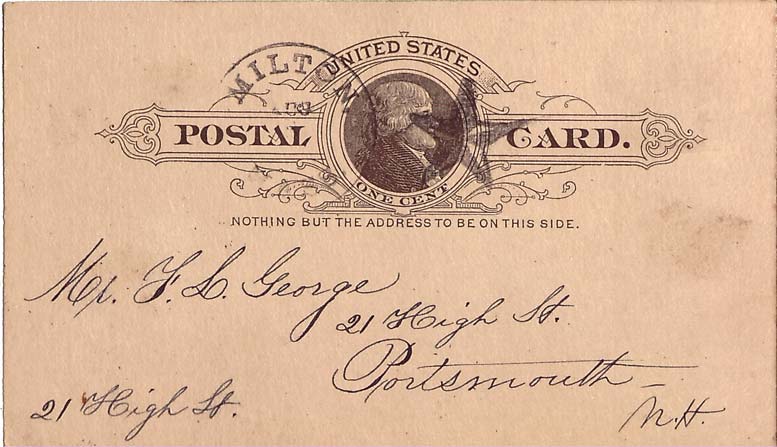 UNITED STATES
MILTON
POSTAL CARD.
ONE CENT
NOTHING BUT THE ADDRESS TO BE ON THIS SIDE.
Mr. F. L. George
21 High St.
Portsmouth
N.H.
21 High St.